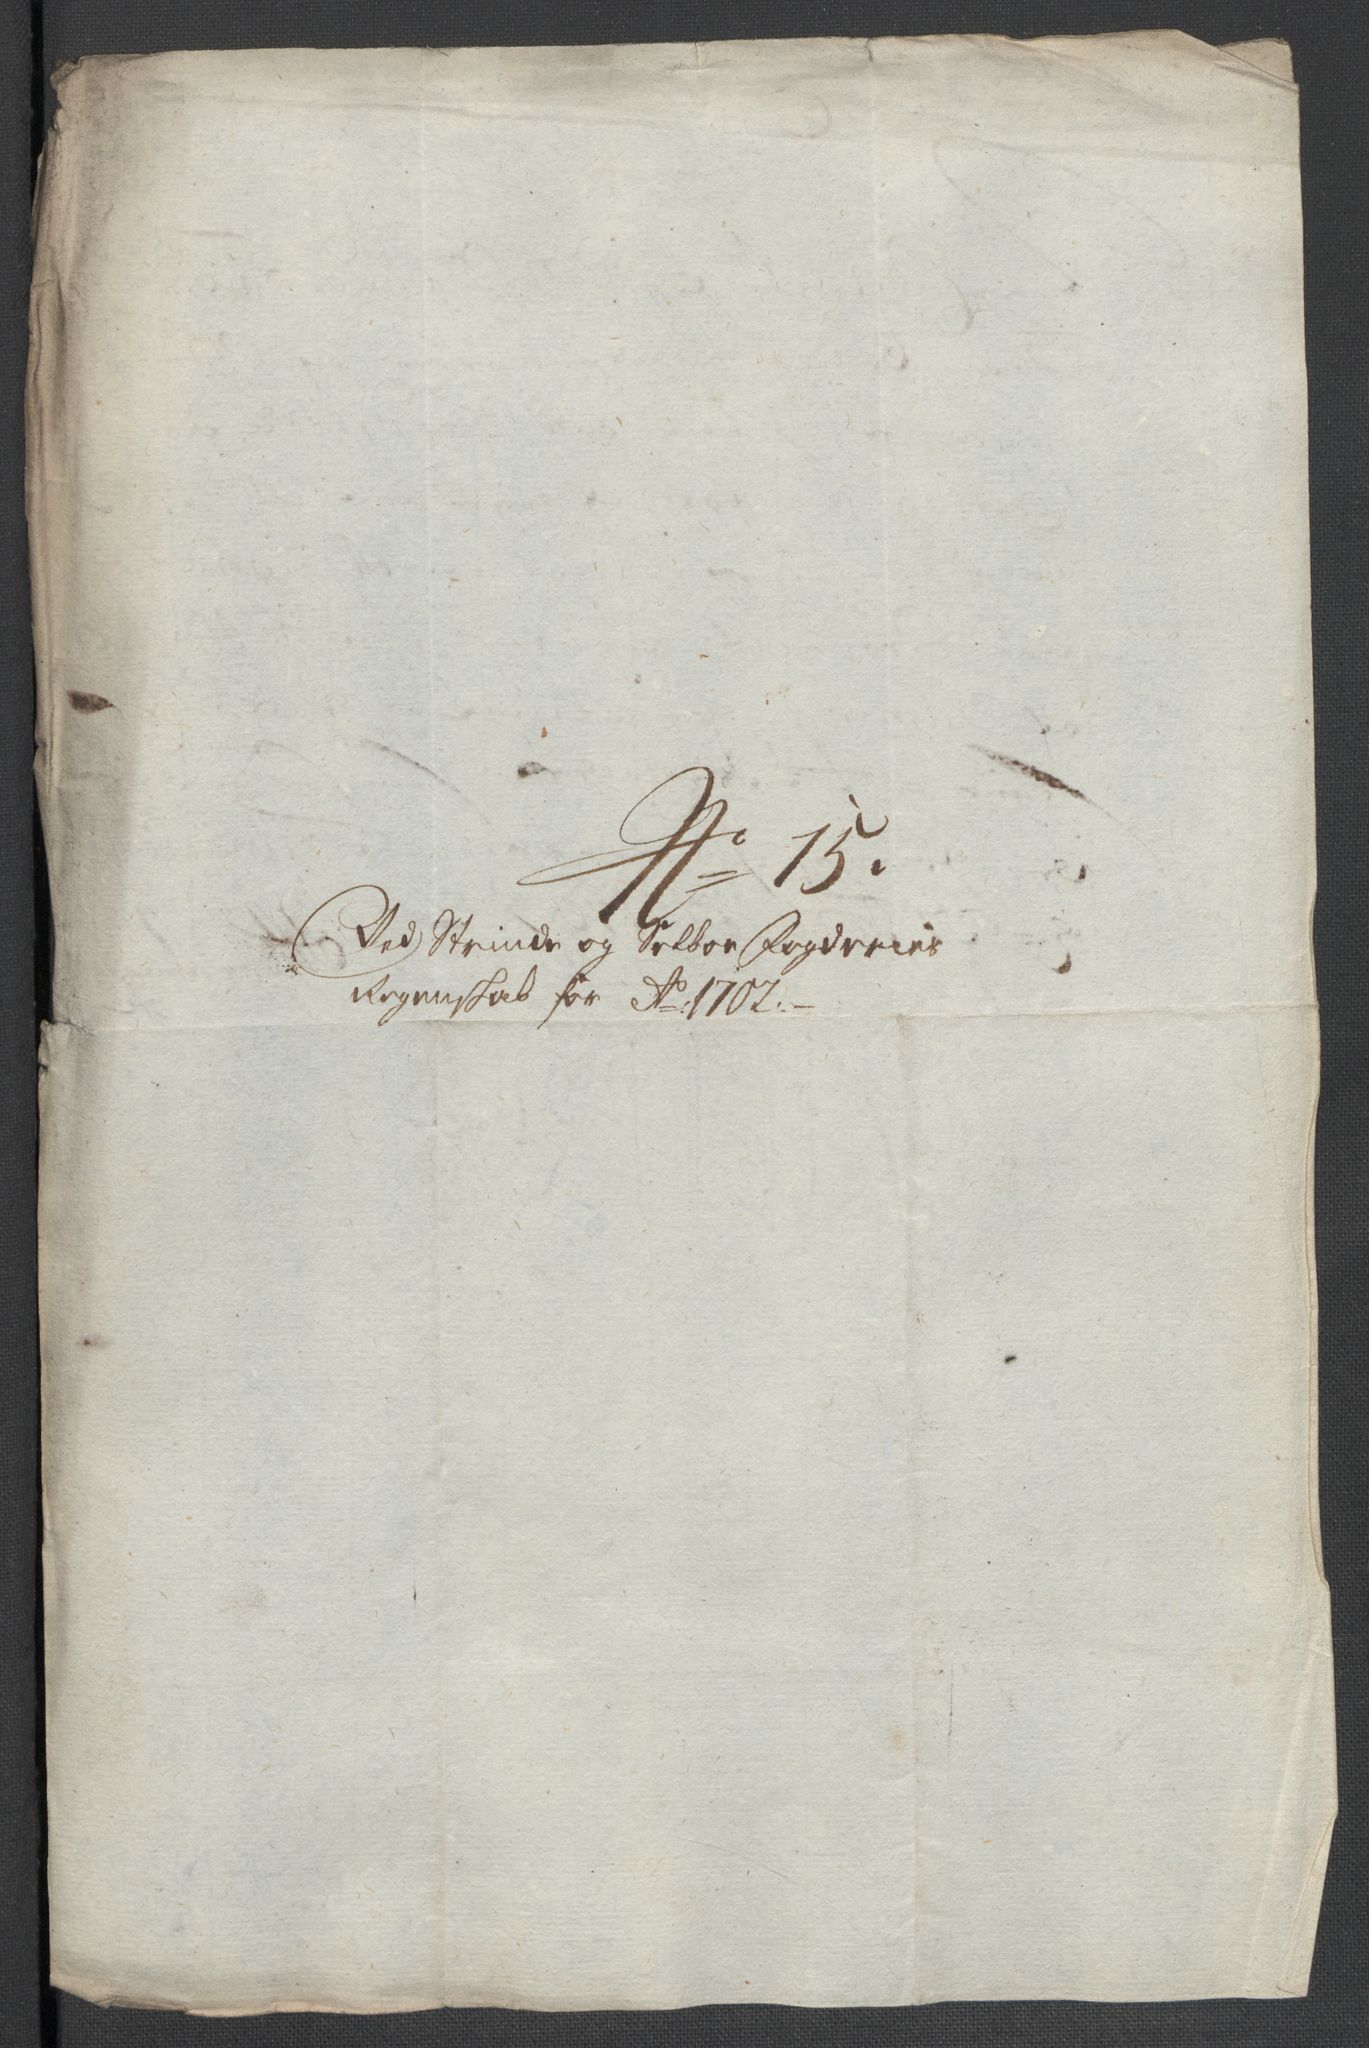 No 15.
Ved Strinde og Selboe Fogderies
Regenskab for Ao. 1702.